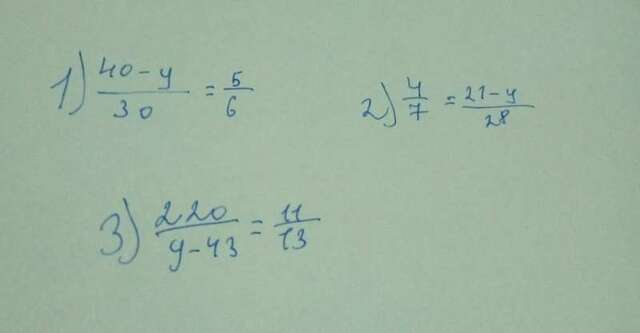 1) (40-y)/30 = 5/6
2) 4/7 = (21-y)/28
3) 220/(y-43) = 11/13